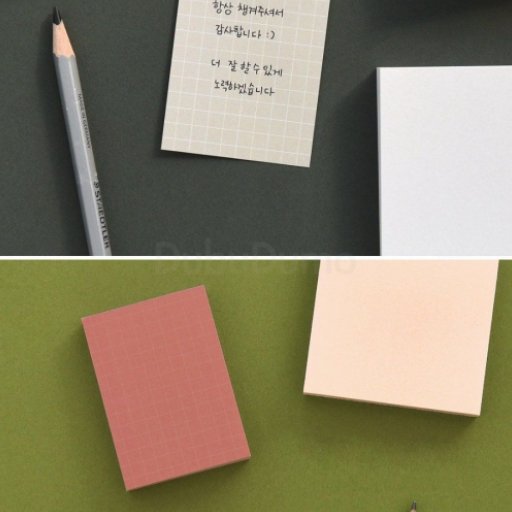 항상 챙겨주셔서
감사합니다 :)
더 잘 할 수 있게
노력하겠습니다
STAEDTLER